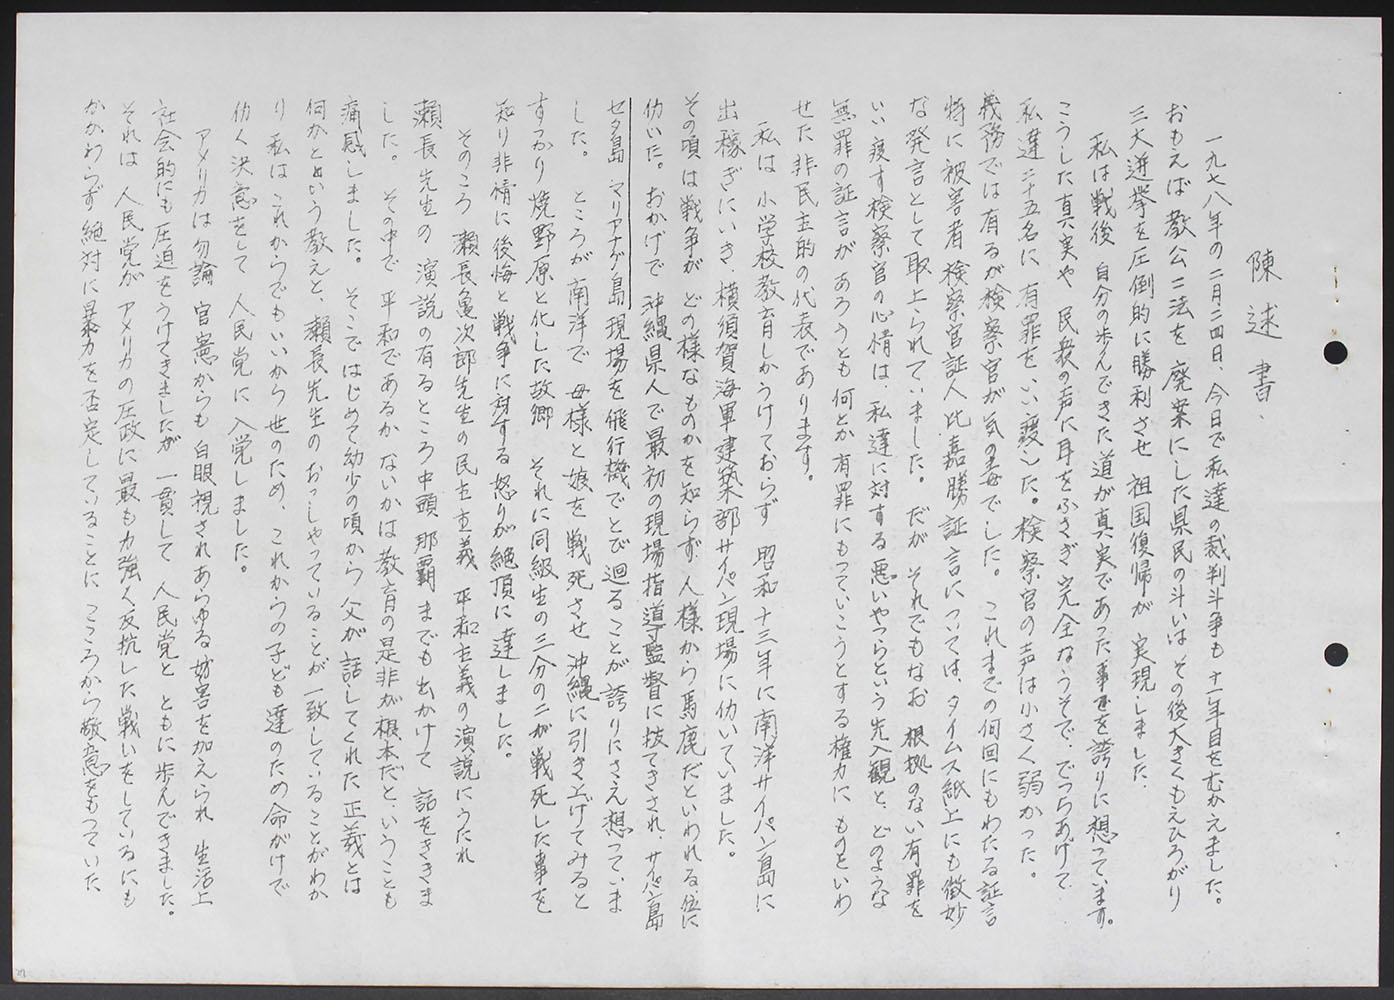 陳述書.
一九七八年の二月二四日、今日で私達の裁判斗争も十一年目をむかえました。
おもえば教公二法を廃案にした県民の斗いはその後大きくもえひろがり
三大選挙を圧倒的に勝利させ祖国復帰が実現しました.
私は戦後自分の歩んできた道が真実であった事を誇りに想っています。
こうした真実や民衆の声に耳をふさぎ完全なうそで.でっちあげて
私達二十五名に有罪をいい渡した。検察官の声は小さく弱かった。
義務では有るが検察官が気の毒でした。これまでの何回にもわたる証言
特に被害者検察官証人比嘉勝証言については、タイムス紙上にも微妙
な発言として取上られていました。だがそれでもなお根拠のない有罪を
いい渡す検察官の心情は私達に対する悪いやつらという先入観と、どのような
無罪の証言があろうとも何とか有罪にもっていこうとする権力にものをいわ
せた非民主的の代表であります。
私は小学校教育しかうけておらず昭和十三年に南洋サイパン島に
出稼ぎにいき.横須賀海軍建築部サイパン現場に仂いていました。
その頃は戦争がどの様なものかを知らず人様から馬鹿だといわれる位に
仂いた。おかげで沖縄県人で最初の現場指導監督に抜てきされ.サイパン島
セタ島マリアナゲ島現場を飛行機でとび廻ることが誇りにさえ想っていま
した。ところが南洋で母様と娘を戦死させ沖縄に引き上げてみると
すっかり焼野原と化した故郷それに同級生の三分の二が戦死した事を
知り非情に後悔と戦争に対する怒りが絶頂に達しました。
そのころ瀬長亀次郎先生の民主主義平和主義の演説にうたれ
瀬長先生の演説の有るところ中頭那覇までも出かけて話をききま
した。その中で平和であるかないかは教育の是非が根本だということも
痛感しました。そこではじめて幼少の頃から父が話してくれた正義とは
何かという教えと、瀬長先生のおっしゃっていることが一致していることがわか
り私はこれからでもいいから世のため、これからの子ども達のため命がけで
仂く決意をして人民党に入党しました。
アメリカは勿論官憲からも白眼視されあらゆる妨害を加えられ生活上
社会的にも圧迫をうけてきましたが一貫して人民党とともに歩んできました。
それは人民党がアメリカの圧政に最も力強く反抗した戦いをしているにも
かかわらず絶対に暴力を否定していることにこころから敬意をもっていた